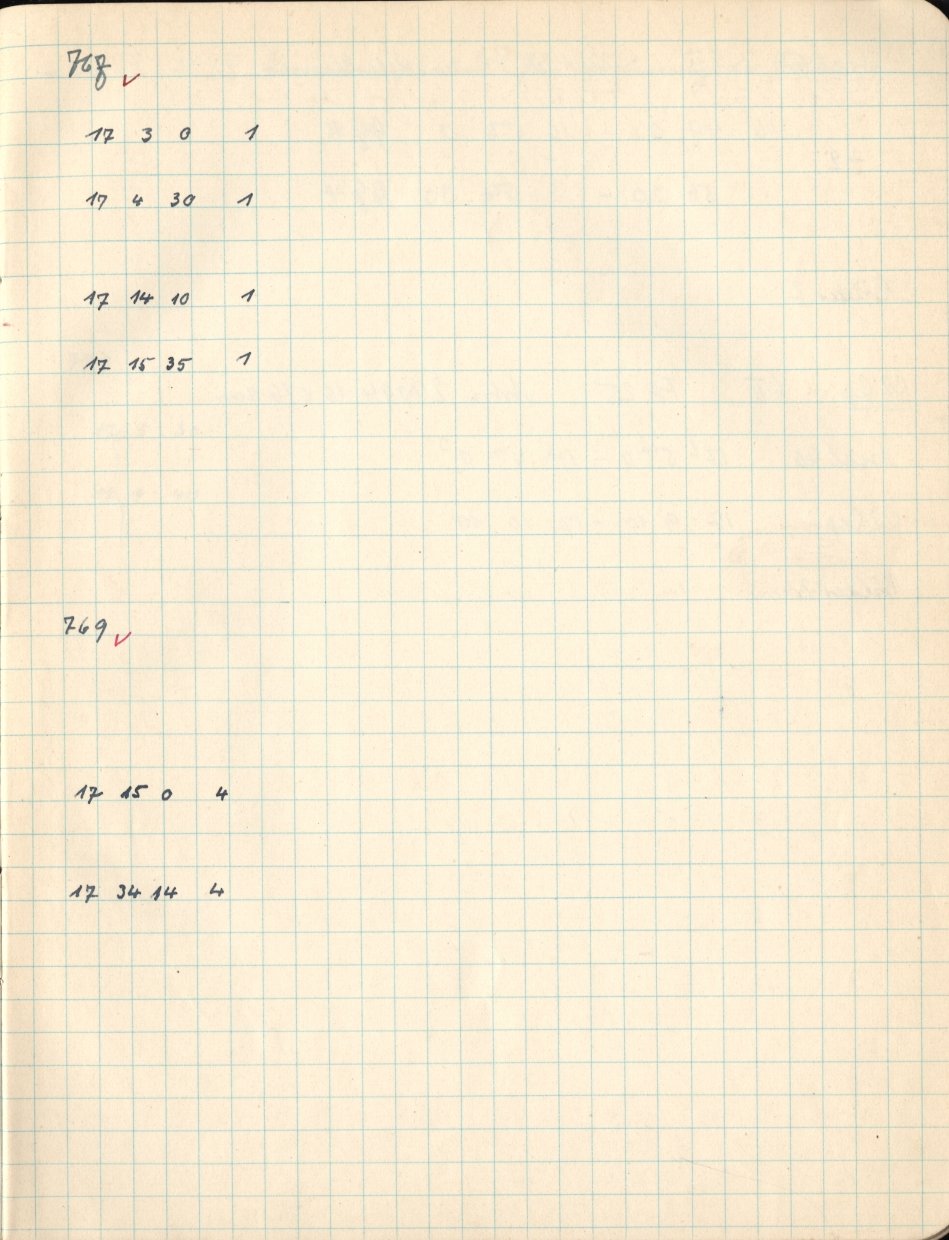 768 ✓
17 3 0 1
17 4 30 1
17 14 10 1
17 15 35 1
769 ✓
17 15 0 4
17 34 14 4